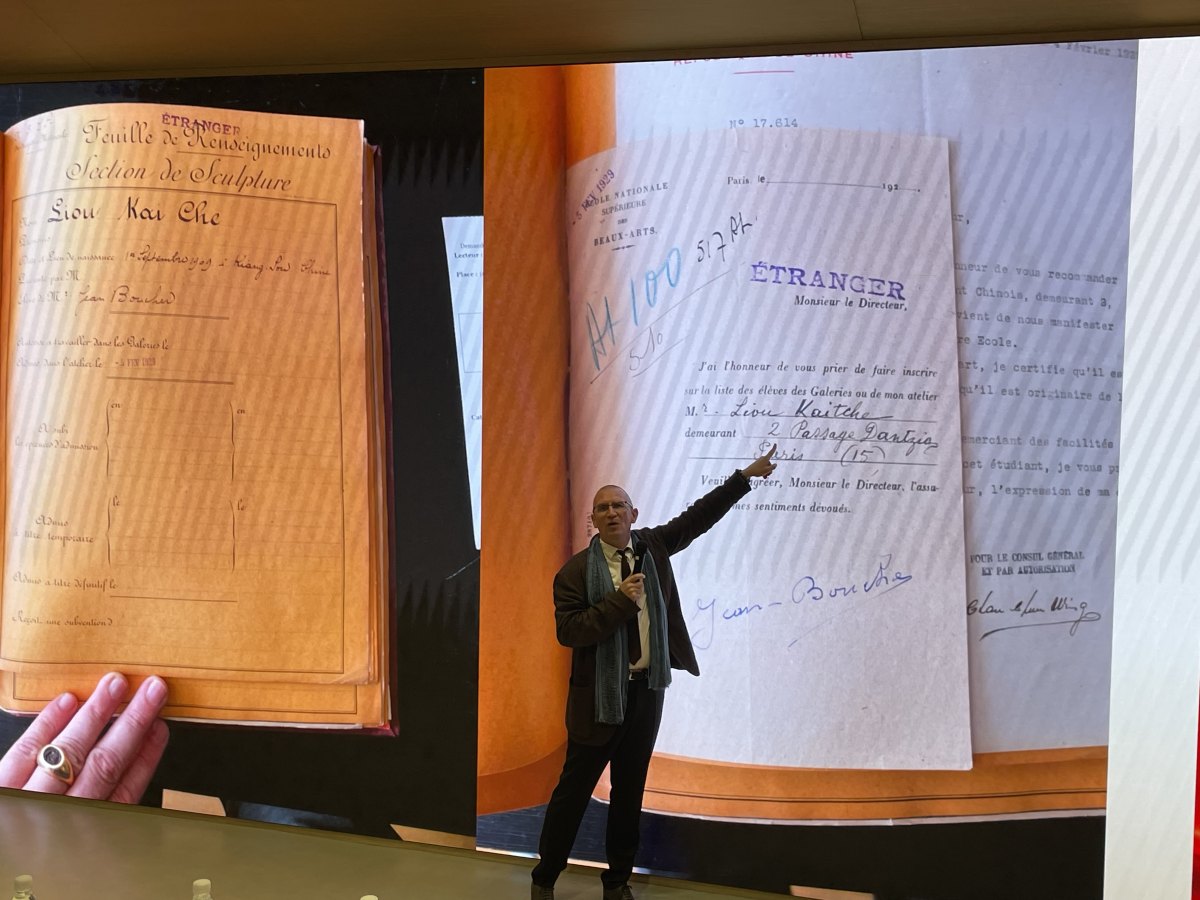 ÉTRANGER
Feuille de Renseignements
Section de Sculpture
Liou Kai Che
Date et Lieu de naissance 1er Septembre 1909 à Kiang-Sou Chine
Présenté par M
Élève de Mr Jean Boucher
Autorisé à travailler dans les Galeries le
Admis dans l'atelier le -4 FEV 1929
en
en
A subi
les épreuves d'admission
le
le
Admis
à titre temporaire
Admis à titre définitif le
Reçoit une subvention d
Lecteur
Place
4 Février 192
N° 17.614
-5 FEV 1929
ÉCOLE NATIONALE
SUPÉRIEURE
DES
BEAUX-ARTS.
Paris, le 192
At 100
517 At.
510
ÉTRANGER
Monsieur le Directeur,
J'ai l'honneur de vous prier de faire inscrire
sur la liste des élèves des Galeries ou de mon atelier
M.r Liou Kaitche
demeurant 2 Passage Dantzig
Paris (15)
agréer, Monsieur le Directeur, l'assu-
mes sentiments dévoués.
Jean-Boucher
nneur de vous recommander
nt Chinois, demeurant 3,
vient de nous manifester
re Ecole.
art, je certifie qu'il es
qu'il est originaire de
emerciant des facilités
cet étudiant, je vous p
ur, l'expression de ma
POUR LE CONSUL GÉNÉRAL
ET PAR AUTORISATION